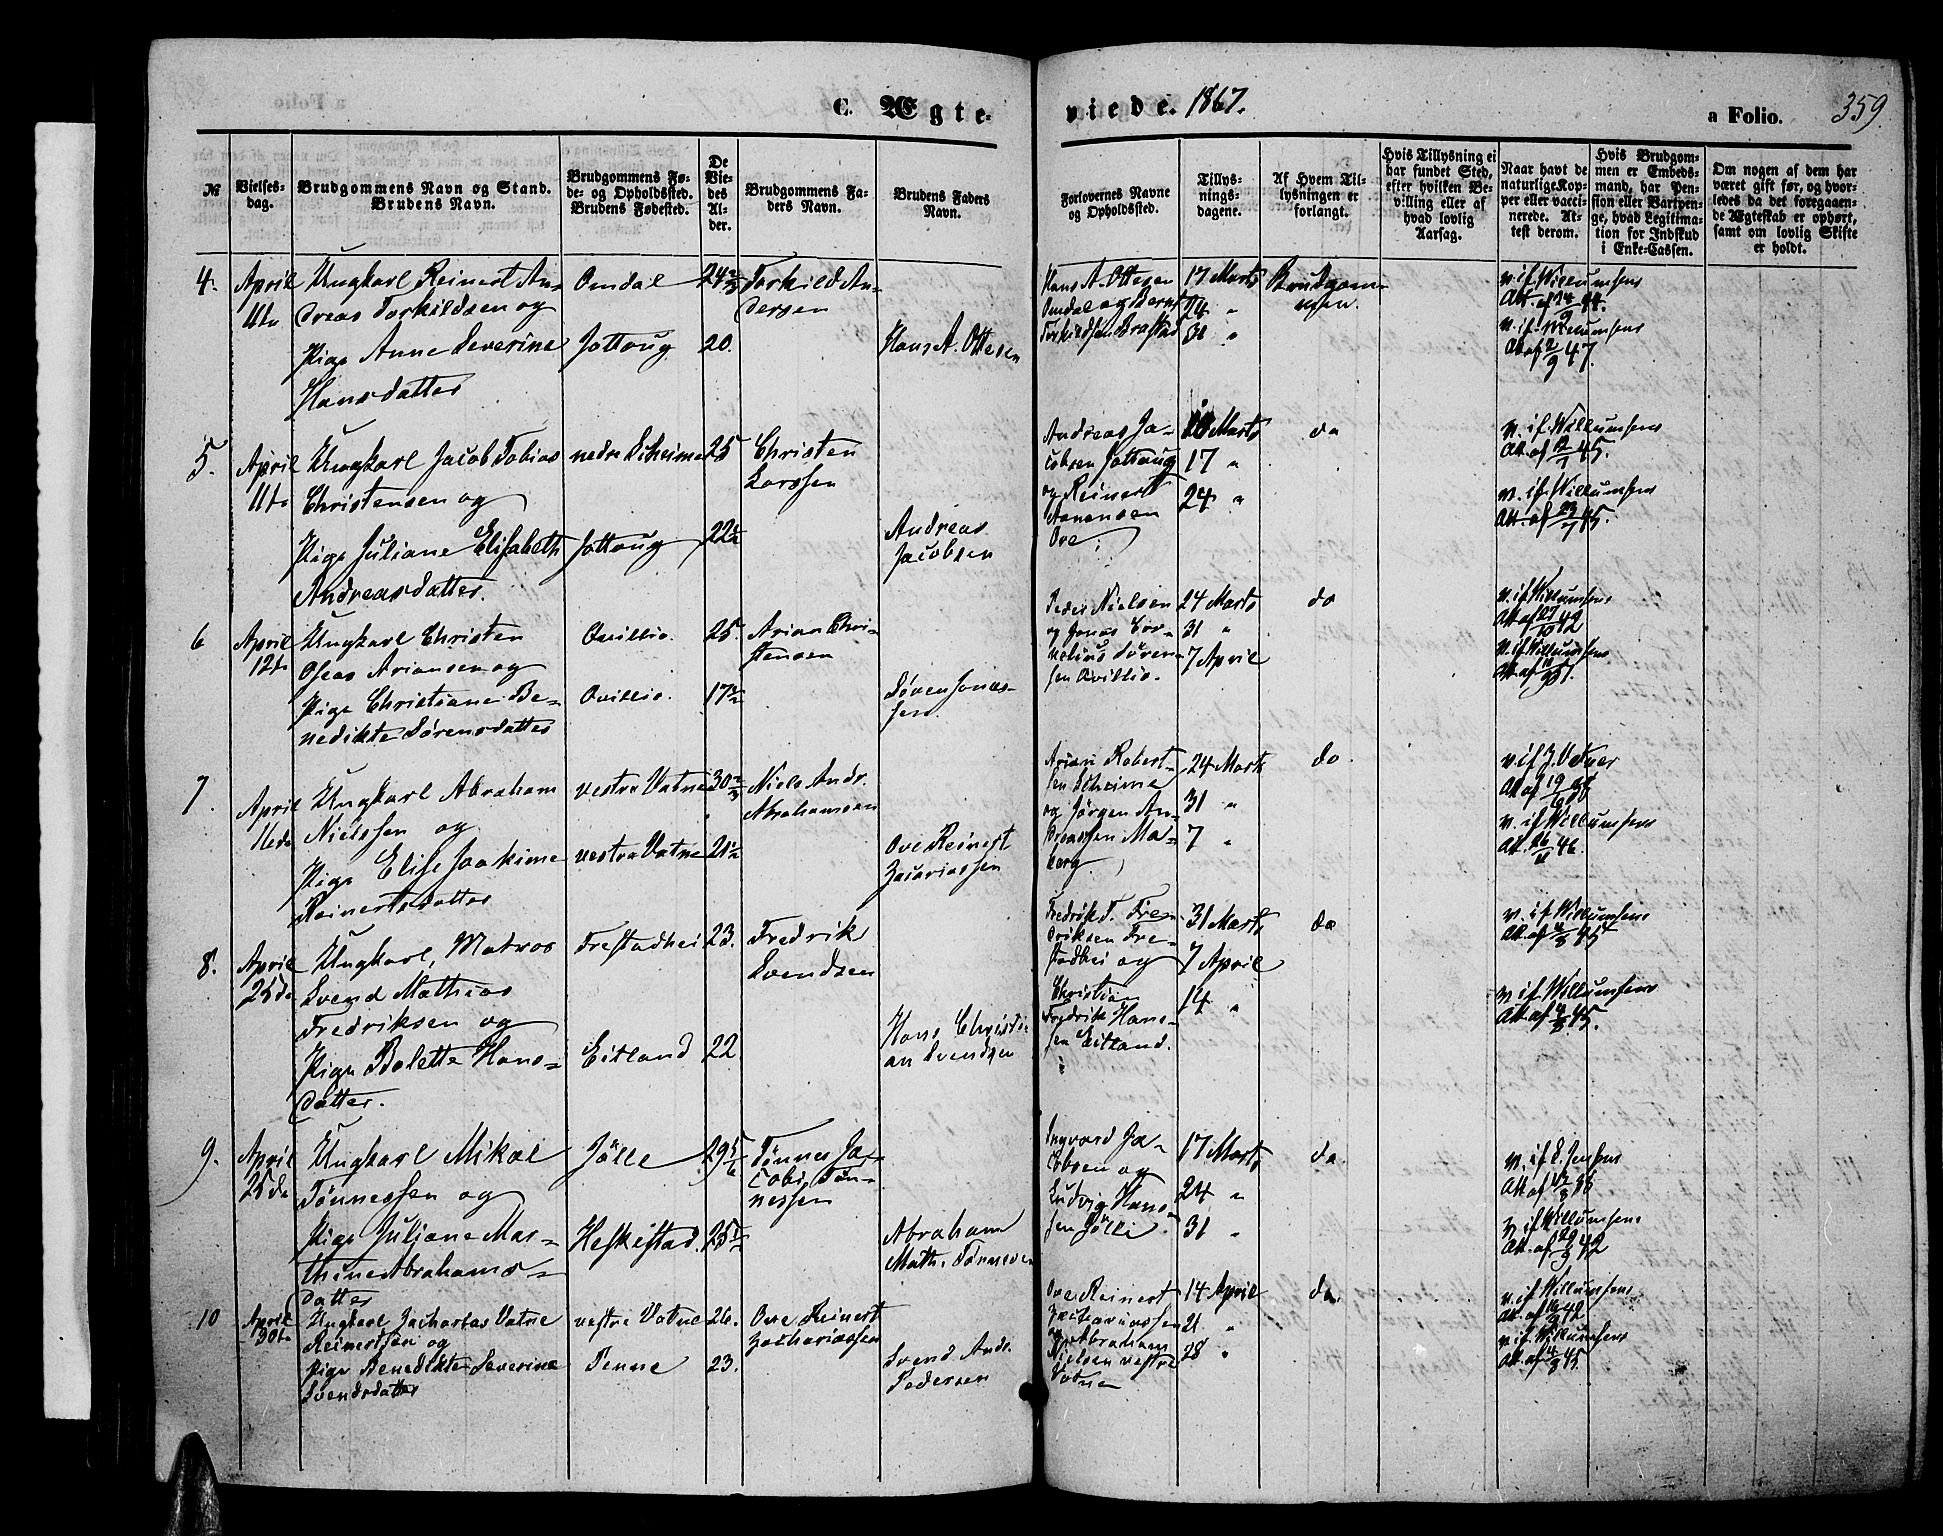 C. Ægte-
viede. 1867.
a Folio. 359.
№
Vielses-
dag.
Brudgommens Navn og Stand.
Brudens Navn.
Brudgommens Fø-
de- og Opholdssted.
Brudens Fødested.
De
Vie-
des
Al-
der.
Brudgommens Fa-
ders Navn.
Brudens Faders
Navn.
Forlovernes Navne
og Opholdssted.
Tillys-
nings-
dagene.
Af Hvem Til-
lysningen er
forlangt.
Hvis Tillysning ei
har fundet Sted,
efter hvilken Be-
villing eller af
hvad lovlig
Aarsag.
Naar havt de
naturlige Kop-
per eller vacci-
nerede. At-
test derom.
Hvis Brudgom-
men er Embeds-
mand, har Pen-
sion eller Vartpen-
ge, hvad Legitima-
tion for Indskud
i Enke-Cassen.
Om nogen af dem har
været gift før, og hvor-
ledes da det foregaaen-
de Ægteskab er ophørt,
samt om lovlig Skifte
er holdt.
4.
April
11te
Ungkarl Reinert An-
dreas Torkildsen og
Pige Anne Severine
Hansdatter
Omdal
Jottoug
24 2/3
20.
Torkild An-
dersen
Hans A. Ottesen
Hans A. Ottesen
Omdal og Bernt
Torkildsen Brastad
17 Marts
24 "
31 "
Brudgom-
men.
v. if. Willumsens
v. if. Willumsens
Att. af 2/9 47.
5.
April
11te
Ungkarl Jacob Tobias
Christensen og
Pige Juliane Elisabeth
Andreasdatter.
nedre Eiheime
Jottoug
25
22 1/2
Christen
Larssen
Andreas
Jacobsen
Andreas Ja-
cobsen Jottoug
og Reinert
Aanensen
Ove
10 Marts
17 "
24 "
do
v. if. Willumsens
Att. af 12/7 45.
v. if. Willumsens
Att. af 23/7 45.
6
April
12te
Ungkarl Christen
Oseas Ariansen og
Pige Christiane Be-
nedikte Sørensdatter
Ovillio.
Ovillio.
25.
17 1/2
Arian Chri-
stensen
Søren Jonas-
sen.
Peder Nielsen
og Jonas Cor-
nelius Søren-
sen Ovillio.
24 Marts
31 "
7 April
do
v. if. Willumsens
Att. af 27/10 42
v. if. Willumsens
7.
April
16de
Ungkarl Abraham
Nielssen og
Pige Elise Joakime
Reinertsdatter
vestre Vatne
vestre Vatne
30 2/3
21 1/2
Niels Andr.
Abrahamsen
Ove Reinert
Zacariassen
Arian Robert-
sen Eiheime
og Jørgen An-
dreassen Mo-
berg
24 Marts
31 "
7 "
do.
v. if
v. if. Willumsens
Att. 26/11 46.
8.
April
25de
Ungkarl, Matros
Svend Mathias
Fredriksen og
Pige Bolette Hans-
datter.
Frestadhei
Eitland
23.
22
Fredrik
Svendsen
Hans Christi-
an Svendsen
Fredrik T. Fre-
driksen Fre-
stadhei og
Christian
Fredrik Hans-
sen Eitland.
31 Marts
7 April
14 "
do
v. if. Willumsens
Att. af 4/8 45
v. if Willumsens
Att. af 4/8 45.
9.
April
25de
Ungkarl Mikal
Tønnessen og
Pige Juliane Mar-
thine Abrahams-
datter
Jølle
Heskestad
29 5/6
25 1/2
Tønnes Ja-
cobi Tøn-
nessen
Abraham
Math. Tønnesen
Ingvard Ja-
cobsen og
Ludvig Hans-
sen Jølli.
17 Marts
24 "
31 "
do
v. if. E. Jensens
Att. af 12/8 38
v. if Willumsens
Att. af 29/9 42
10
April
30te
Ungkarl Zacharias Vatne
Reinertsen og
Pige Benedikte Severine
Svendsdatter
vestre Vatne
Penne
26.
23.
Ove Reinert
Zachariassen
Svend Andr.
Pedersen
Ove Reinert
Zachariassen
og Abraham
Nielsen vestre
Vatne
14 April
21 "
28 "
do.
v. if. Willumsens
v. if Willumsens